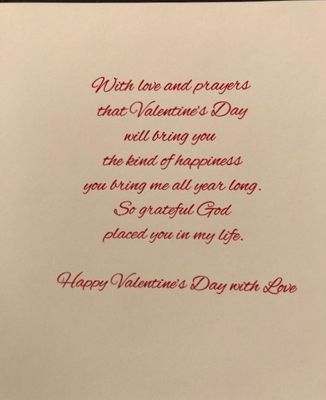 With love and prayers
that Valentine's Day
will bring you
the kind of happiness
you bring me all year long.
So grateful God
placed you in my life.
Happy Valentine's Day with Love